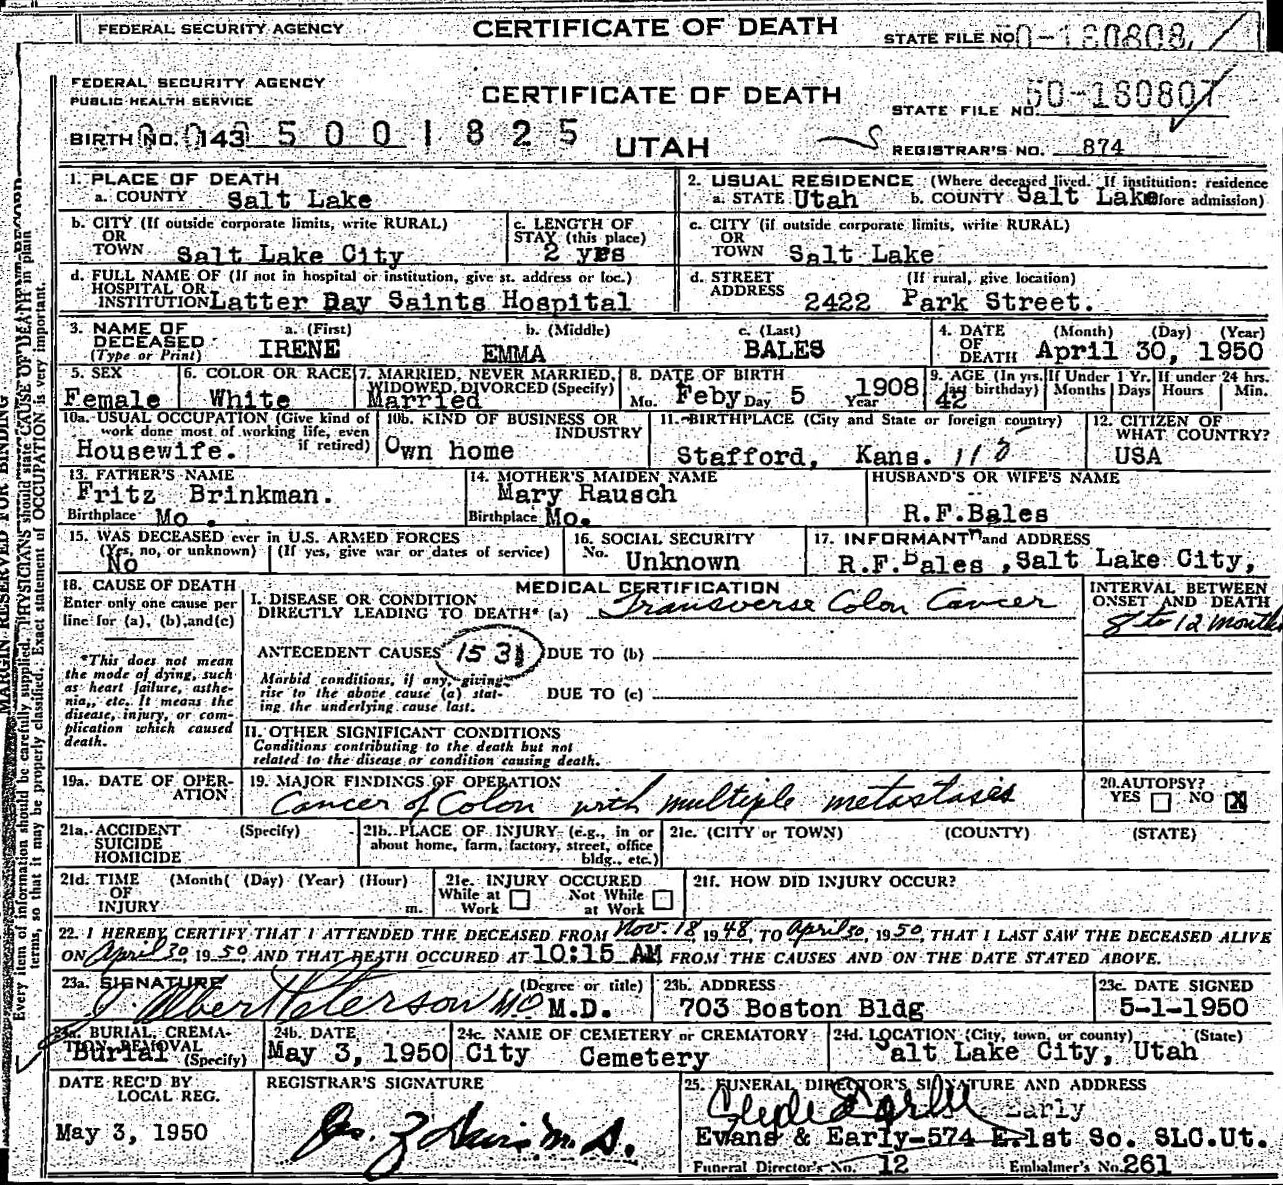 FEDERAL SECURITY AGENCY CERTIFICATE OF DEATH STATE FILE NO. 0-180808
FEDERAL SECURITY AGENCY
PUBLIC HEALTH SERVICE
CERTIFICATE OF DEATH
STATE FILE NO. 50-180807
BIRTH NO. 143 5 0 0 1 8 2 5
UTAH
REGISTRAR'S NO. 874
1. PLACE OF DEATH
a. COUNTY Salt Lake
2. USUAL RESIDENCE (Where deceased lived. If institution: residence
a. STATE Utah b. COUNTY Salt Lake before admission)
b. CITY (If outside corporate limits, write RURAL)
OR
TOWN Salt Lake City
c. LENGTH OF
STAY (this place)
2 yrs
c. CITY (if outside corporate limits, write RURAL)
OR
TOWN Salt Lake
d. FULL NAME OF (If not in hospital or institution, give st. address or loc.)
HOSPITAL OR
INSTITUTION Latter Day Saints Hospital
d. STREET (If rural, give location)
ADDRESS 2422 Park Street.
3. NAME OF
DECEASED
(Type or Print)
a. (First) b. (Middle) c. (Last)
IRENE EMMA BALES
4. DATE (Month) (Day) (Year)
OF
DEATH April 30, 1950
5. SEX
Female
6. COLOR OR RACE
White
7. MARRIED, NEVER MARRIED,
WIDOWED, DIVORCED (Specify)
Married
8. DATE OF BIRTH
Mo. Feby Day 5 Year 1908
9. AGE (In yrs. last birthday)
42
If Under 1 Yr.
Months Days
If under 24 hrs.
Hours Min.
10a. USUAL OCCUPATION (Give kind of
work done most of working life, even
if retired)
Housewife.
10b. KIND OF BUSINESS OR
INDUSTRY
Own home
11. BIRTHPLACE (City and State or foreign country)
Stafford, Kans.
12. CITIZEN OF
WHAT COUNTRY?
USA
13. FATHER'S NAME
Fritz Brinkman.
Birthplace Mo.
14. MOTHER'S MAIDEN NAME
Mary Rausch
Birthplace Mo.
HUSBAND'S OR WIFE'S NAME
R.F.Bales
15. WAS DECEASED ever in U.S. ARMED FORCES
(Yes, no, or unknown) (If yes, give war or dates of service)
No
16. SOCIAL SECURITY
No. Unknown
17. INFORMANT and ADDRESS
R.F.Bales ,Salt Lake City,
18. CAUSE OF DEATH
Enter only one cause per
line for (a), (b), and (c)
*This does not mean
the mode of dying, such
as heart failure, asthe-
nia, etc. It means the
disease, injury, or com-
plication which caused
death.
MEDICAL CERTIFICATION
I. DISEASE OR CONDITION
DIRECTLY LEADING TO DEATH* (a) Transverse Colon Cancer
INTERVAL BETWEEN
ONSET AND DEATH
8 to 12 months
ANTECEDENT CAUSES 1531 DUE TO (b)
Morbid conditions, if any, giving
rise to the above cause (a) stat-
ing the underlying cause last.
DUE TO (c)
II. OTHER SIGNIFICANT CONDITIONS
Conditions contributing to the death but not
related to the disease or condition causing death.
19a. DATE OF OPER-
ATION
19. MAJOR FINDINGS OF OPERATION
Cancer of Colon with multiple metastasis
20. AUTOPSY?
YES NO X
21a. ACCIDENT (Specify)
SUICIDE
HOMICIDE
21b. PLACE OF INJURY (e.g., in or
about home, farm, factory, street, office
bldg., etc.)
21c. (CITY or TOWN) (COUNTY) (STATE)
21d. TIME (Month( (Day) (Year) (Hour)
OF
INJURY m.
21e. INJURY OCCURED
While at Work Not While at Work
21f. HOW DID INJURY OCCUR?
22. I HEREBY CERTIFY THAT I ATTENDED THE DECEASED FROM Nov. 18, 1948, TO April 30, 1950, THAT I LAST SAW THE DECEASED ALIVE
ON April 30 1950 AND THAT DEATH OCCURED AT 10:15 AM FROM THE CAUSES AND ON THE DATE STATED ABOVE.
23a. SIGNATURE (Degree or title)
Albert Peterson MD M.D.
23b. ADDRESS
703 Boston Bldg
23c. DATE SIGNED
5-1-1950
24a. BURIAL, CREMA-
TION, REMOVAL
Burial (Specify)
24b. DATE
May 3, 1950
24c. NAME OF CEMETERY or CREMATORY
City Cemetery
24d. LOCATION (City, town, or county) (State)
Salt Lake City, Utah
DATE REC'D BY
LOCAL REG.
May 3, 1950
REGISTRAR'S SIGNATURE
25. FUNERAL DIRECTOR'S SIGNATURE AND ADDRESS
Clyde Early Early
Evans & Early-574 E.1st So. SLC.Ut.
Funeral Director's No. 12 Embalmer's No. 261
MARGIN RESERVED FOR BINDING
Every item of information should be carefully supplied. PHYSICIANS should state CAUSE OF DEATH in plain
terms, so that it may be properly classified. Exact statement of OCCUPATION is very important.